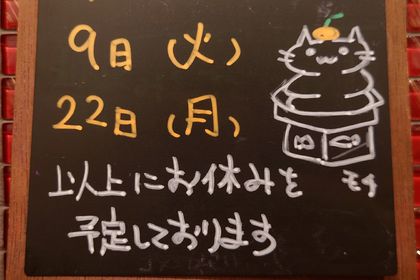 9日(火)
22日(月)
以上にお休みを
予定しております
モチ